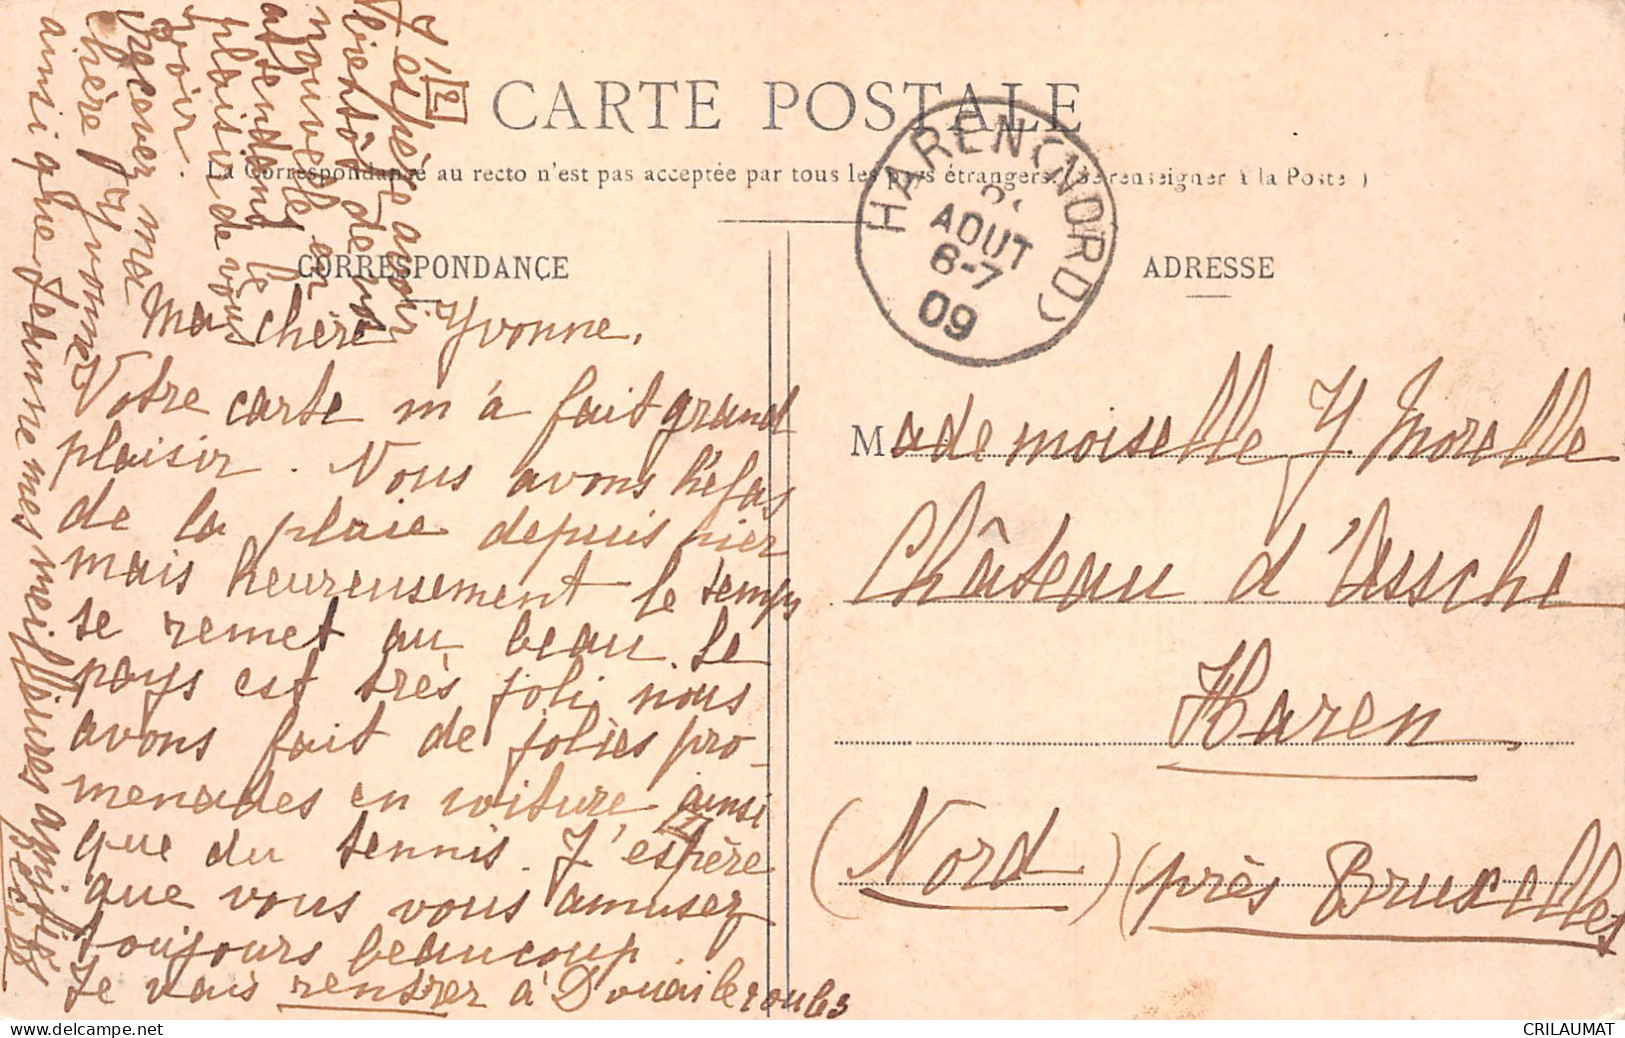 CARTE POSTALE
La Correspondance au recto n'est pas acceptée par tous les pays étrangers. (Se renseigner à la Poste)
CORRESPONDANCE
ADRESSE
HAREN (NORD)
AOUT
6-7
09
Ma chère Yvonne,
Votre carte m'a fait grand
plaisir. Nous avons hélas
de la pluie depuis hier
mais heureusement le temps
se remet au beau. Le
pays est très joli nous
avons fait de jolies pro-
menades en voiture, ainsi
que du tennis. J'espère
que vous vous amusez
toujours beaucoup.
Je vais rentrer à Douai le
2
J'espère avoir
bientôt de vos
nouvelles en
attendant le
plaisir de vous
voir.
Recevez ma
chère Yvonne
ainsi que Jeanne mes meilleures amitiés
Mademoiselle Y. Morelle
Château d'Assche
Haren
(Nord) (près Bruxelles
CRILAUMAT